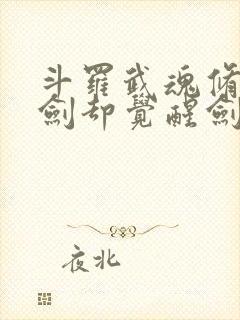 斗羅武魂脩
劍却覺醒劍
夜北